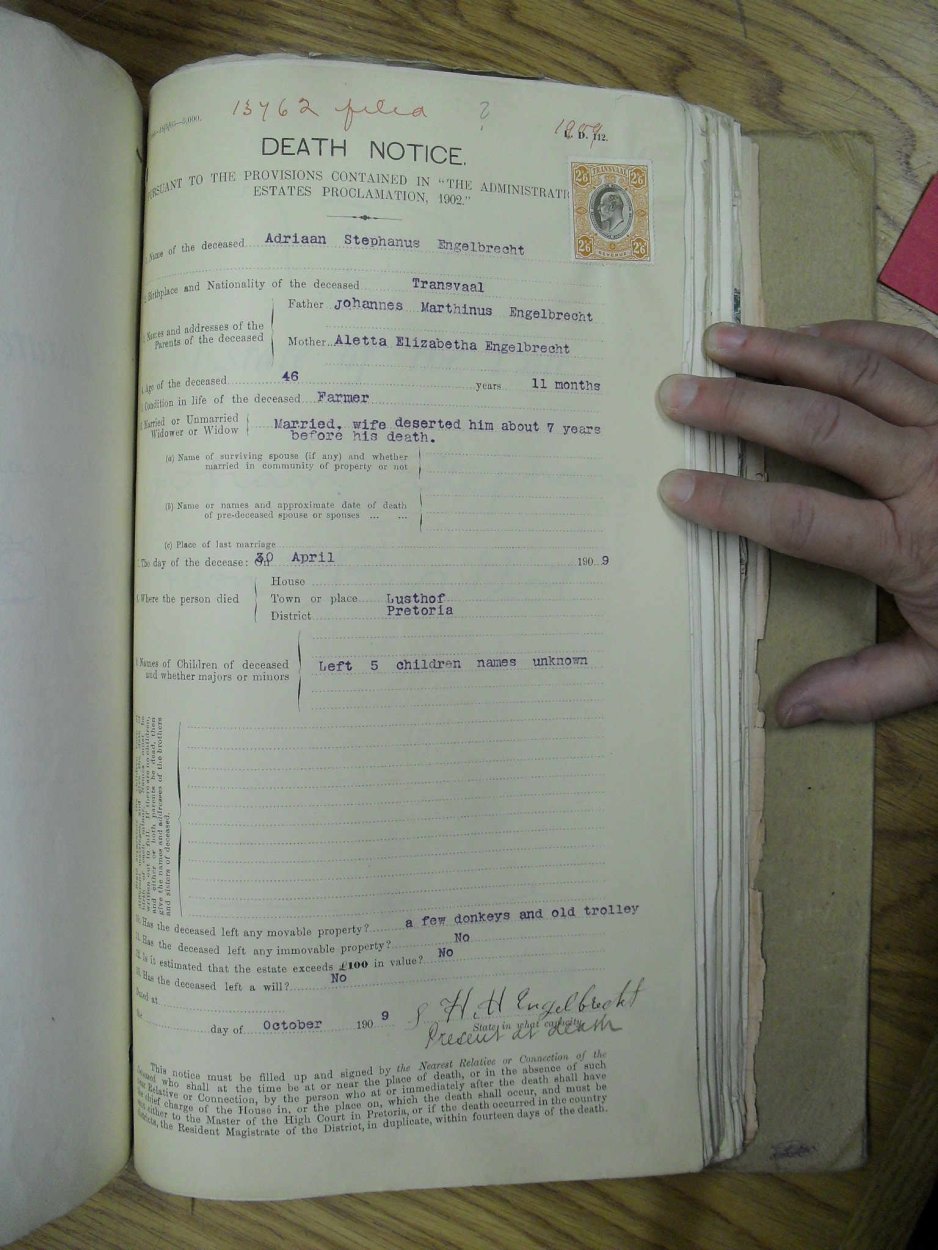 13762 filed ?
1909
L. D. 112.
DEATH NOTICE.
PURSUANT TO THE PROVISIONS CONTAINED IN "THE ADMINISTRATI
ESTATES PROCLAMATION, 1902."
TRANSVAAL
2/6 2/6
2/6 2/6
REVENUE
Name of the deceased Adriaan Stephanus Engelbrecht
Birthplace and Nationality of the deceased Transvaal
Names and addresses of the Parents of the deceased
Father Johannes Marthinus Engelbrecht
Mother Aletta Elizabetha Engelbrecht
4. Age of the deceased 46 years 11 months
Condition in life of the deceased Farmer
Married or Unmarried Widower or Widow
Married, wife deserted him about 7 years
before his death.
(a) Name of surviving spouse (if any) and whether
married in community of property or not
(b) Name or names and approximate date of death
of pre-deceased spouse or spouses ... ...
(c) Place of last marriage
7. The day of the decease: On 30 April 1909
Where the person died
House
Town or place Lusthof
District Pretoria
Names of Children of deceased
and whether majors or minors
Left 5 children names unknown
written out in full. If there are no children,
and either or both parents be dead, then
give the names and addresses of the brothers
and sisters of deceased.
10. Has the deceased left any movable property? a few donkeys and old trolley
11. Has the deceased left any immovable property? No
12. Is it estimated that the estate exceeds £100 in value? No
13. Has the deceased left a will? No
Dated at
the day of October 1909
H H Engelbrecht
State in what capacity
Present at death
This notice must be filled up and signed by the Nearest Relative or Connection of the
deceased who shall at the time be at or near the place of death, or in the absence of such
near Relative or Connection, by the person who at or immediately after the death shall have
the chief charge of the House in, or the place on, which the death shall occur, and must be
sent either to the Master of the High Court in Pretoria, or if the death occurred in the country
districts, the Resident Magistrate of the District, in duplicate, within fourteen days of the death.